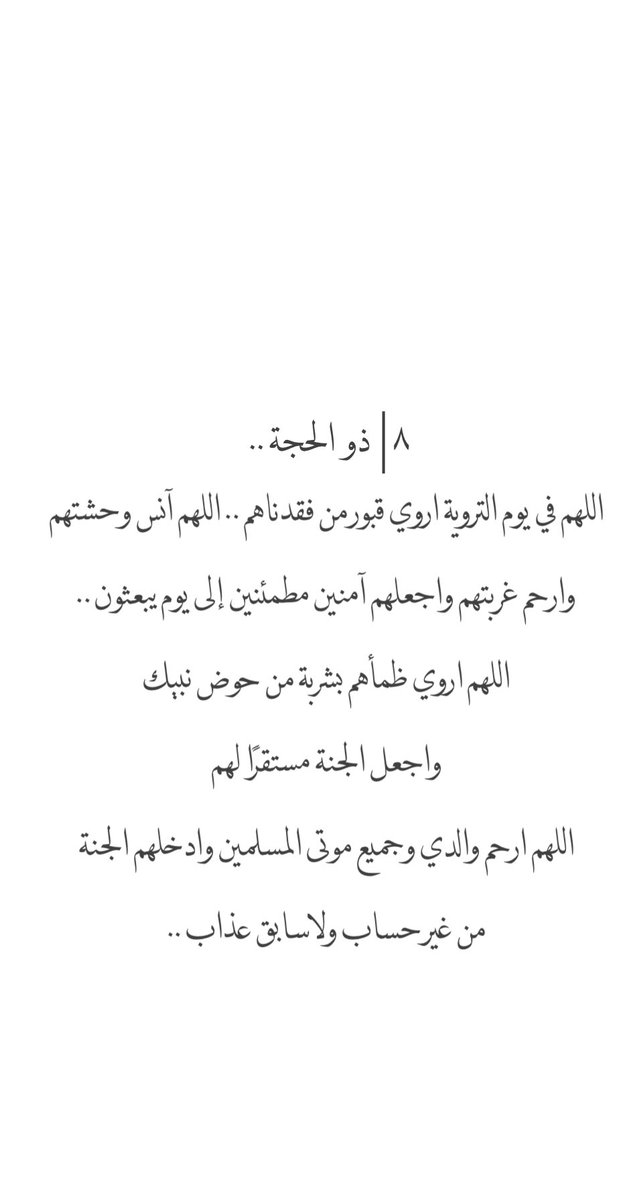 ٨| ذو الحجة ..
اللهم في يوم التروية اروي قبور من فقدناهم .. اللهم آنس وحشتهم
وارحم غربتهم واجعلهم آمنين مطمئنين إلى يوم يبعثون ..
اللهم اروي ظمأهم بشربة من حوض نبيك
واجعل الجنة مستقرًا لهم
اللهم ارحم والدي وجميع موتى المسلمين وادخلهم الجنة
من غير حساب ولاسابق عذاب ..